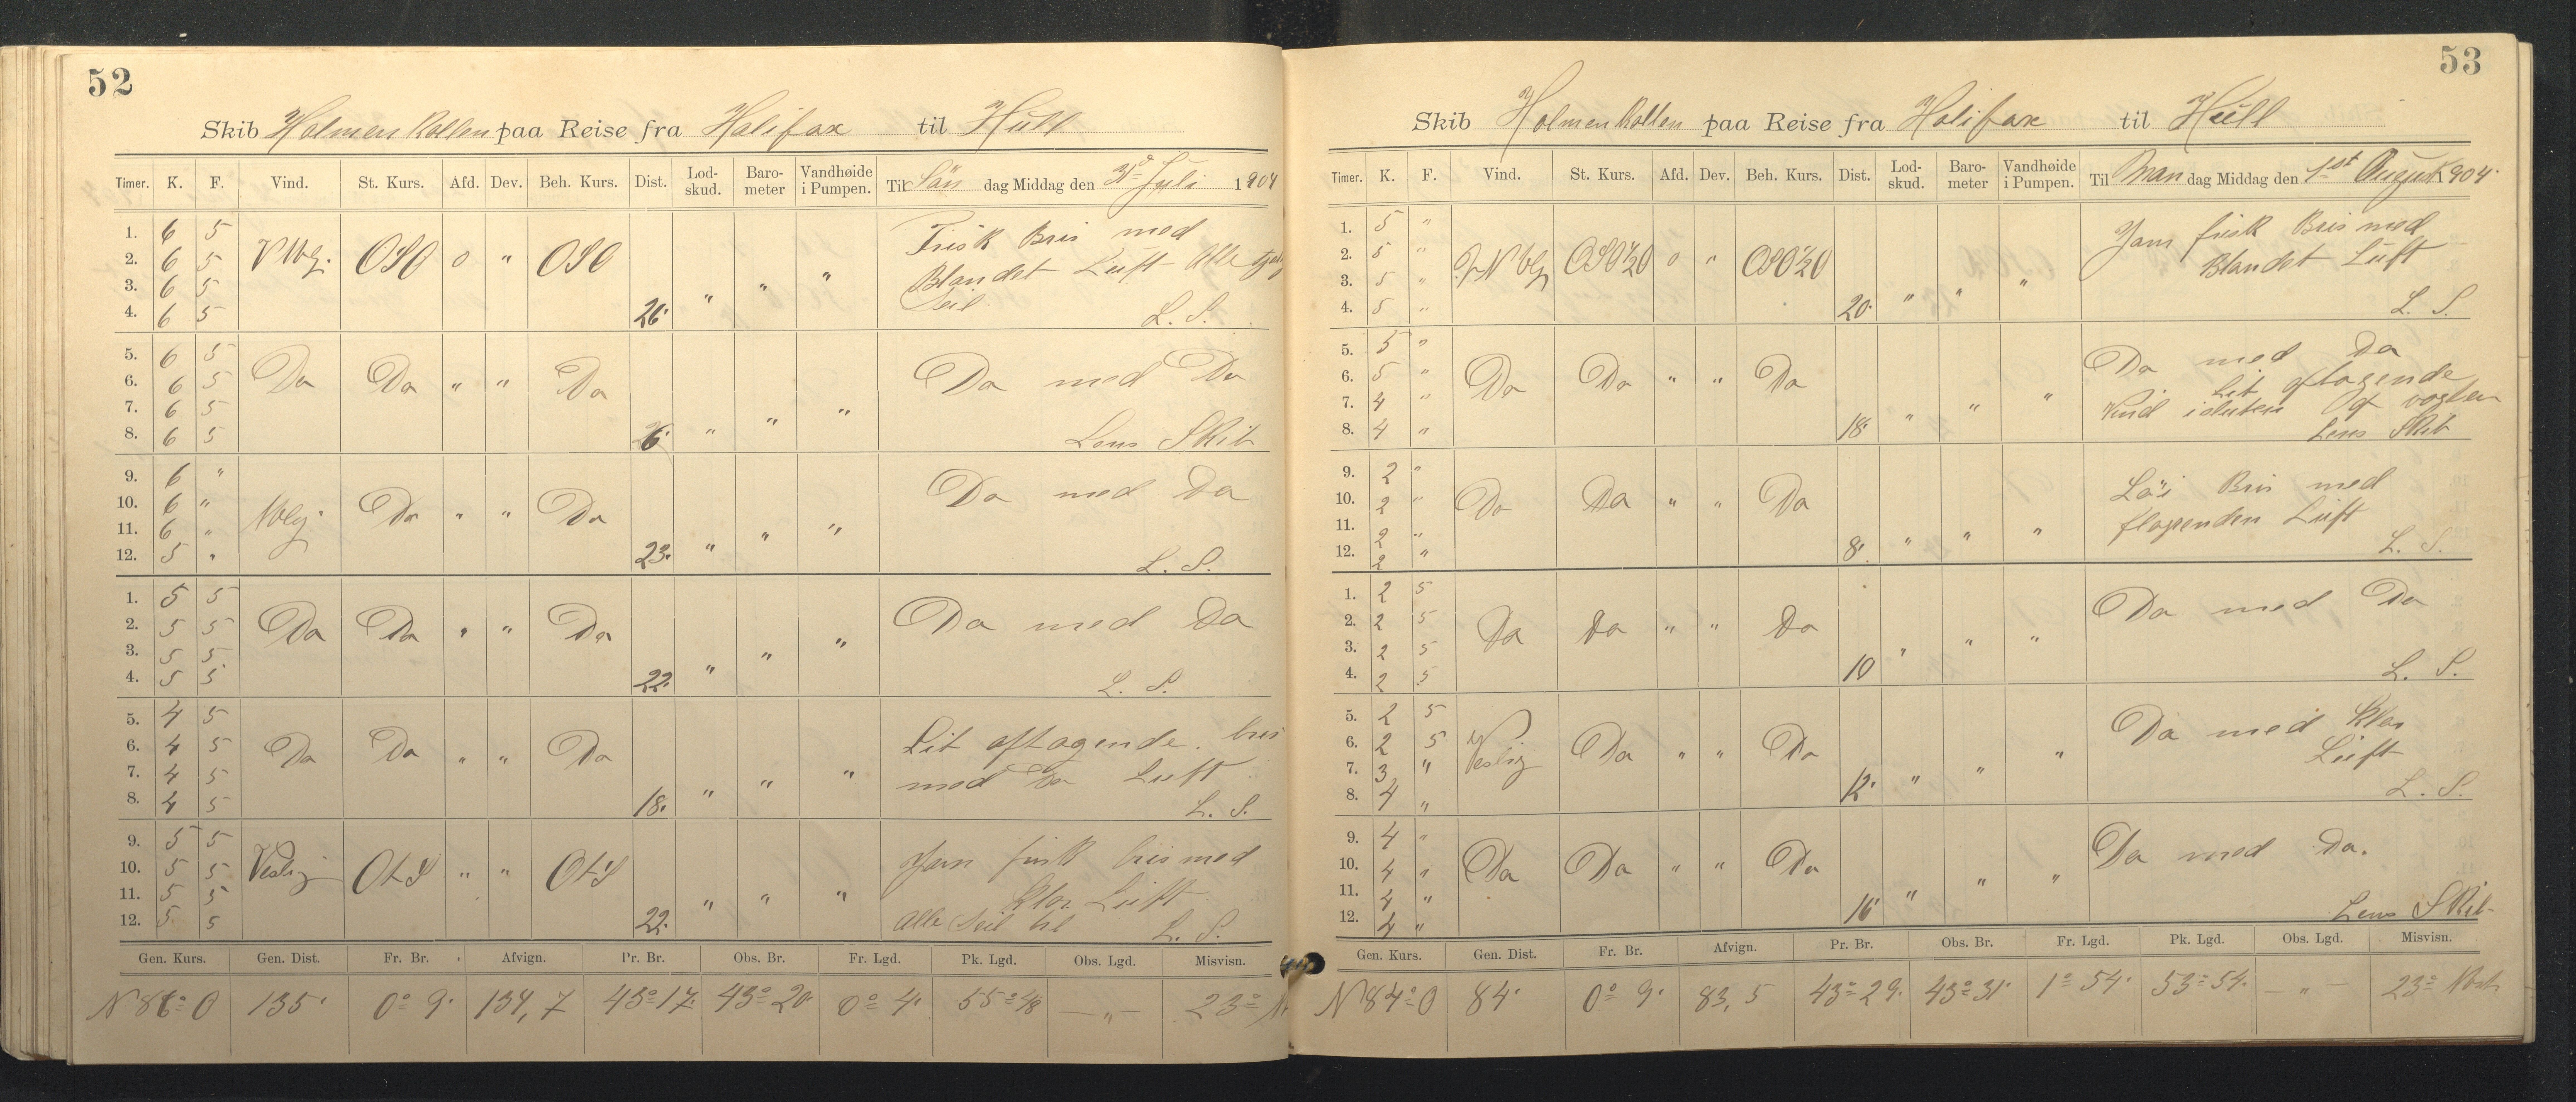 52
Skib Holmenkollen paa Reise fra Halifax til Hull
Timer. K. F. Vind. St. Kurs. Afd. Dev. Beh. Kurs. Dist. Lod-skud. Baro-meter Vandhøide i Pumpen. Til Søn dag Middag den 31 Juli 1904
1. 6 5 Frisk Bris med
2. 6 5 OSO 0 " OSO Blandet Luft Alle
3. 6 5 " " " Seil
4. 6 5 26. L. S.
5. 6 5
6. 6 5 Do Do " " Do Do med Do
7. 6 5 " " "
8. 6 5 26. Lens Skib
9. 6 "
10. 6 " Do " " Do Do med Do
11. 6 " " " "
12. 5 " 23. L. S.
1. 5 5
2. 5 5 Do Do " " Do Do med Do
3. 5 5 " " "
4. 5 5 22. L. S.
5. 4 5
6. 4 5 Do Do " " Do Lit aftagende bris
7. 4 5 " " " med Do Luft
8. 4 5 18. L. S.
9. 5 5 Jevn frisk bris med
10. 5 5 Veslig OtS " " OtS
11. 5 5 " " " Klar Luft
12. 5 5 22. Alle Seil til L. S.
Gen. Kurs. Gen. Dist. Fr. Br. Afvign. Pr. Br. Obs. Br. Fr. Lgd. Pk. Lgd. Obs. Lgd. Misvisn.
N 86° O 135. 0° 9. 134,7 43° 17. 43° 20. 0° 4. 55° 48 — " — 23°
53
Skib Holmenkollen paa Reise fra Halifax til Hull
Timer. K. F. Vind. St. Kurs. Afd. Dev. Beh. Kurs. Dist. Lod-skud. Baro-meter Vandhøide i Pumpen. Til Man dag Middag den 1st August 1904.
1. 5 " Jevn frisk Bris med
2. 5 " OSO½O 0 " OSO½O Blandet Luft
3. 5 " " " "
4. 5 " 20. L. S.
5. 5 " Do med Do
6. 5 " Do Do " " Do Lit aftagende
7. 4 " " " " Vind
8. 4 " 18. Lens Skib
9. 2 "
10. 2 " Do Do " " Do Bris med
11. 2 " " " " Luft
12. 2 " 8. L. S.
1. 2 5
2. 2 5 Do Do " " Do Do med Do
3. 2 5 " " "
4. 2 5 10 L. S.
5. 2 5 Do med Klar
6. 2 5 Veslig Do " " Do
7. 3 " " " " Luft
8. 4 " 12. L. S.
9. 4 "
10. 4 " Do Do " " Do Do med Do.
11. 4 " " " "
12. 4 " 16 Lens Skib
Gen. Kurs. Gen. Dist. Fr. Br. Afvign. Pr. Br. Obs. Br. Fr. Lgd. Pk. Lgd. Obs. Lgd. Misvisn.
N 84° O 84. 0° 9. 83,5 43° 29. 43° 31. 1° 54. 53° 54. — " — 23° Vest